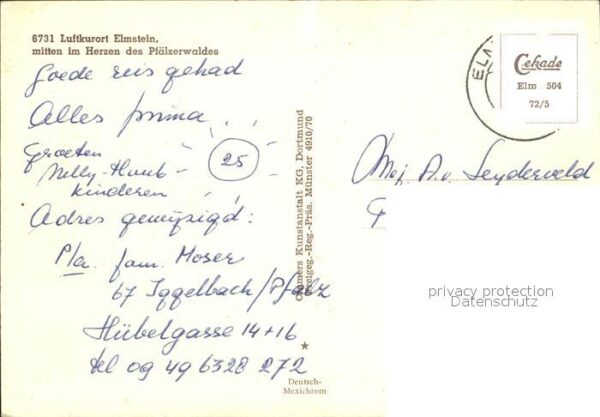 6731 Luftkurort Elmstein,
mitten im Herzen des Pfälzerwaldes
Goede reis gehad
Alles prima.
Groeten
Nelly - Huub -
kinderen
25
Adres gewijzigd:
P/a. fam. Moser
67 Iggelbach/Pfalz
Hübelgasse 14+16
tel 09 49 6328 272
Cramers Kunstanstalt KG, Dortmund
Freigeg.-Reg.-Präs. Münster 4910/70
Deutsch-
Mexichrom
ELM
Cekade
Elm 504
72/5
Mej A.v Leyderveld
privacy protection
Datenschutz